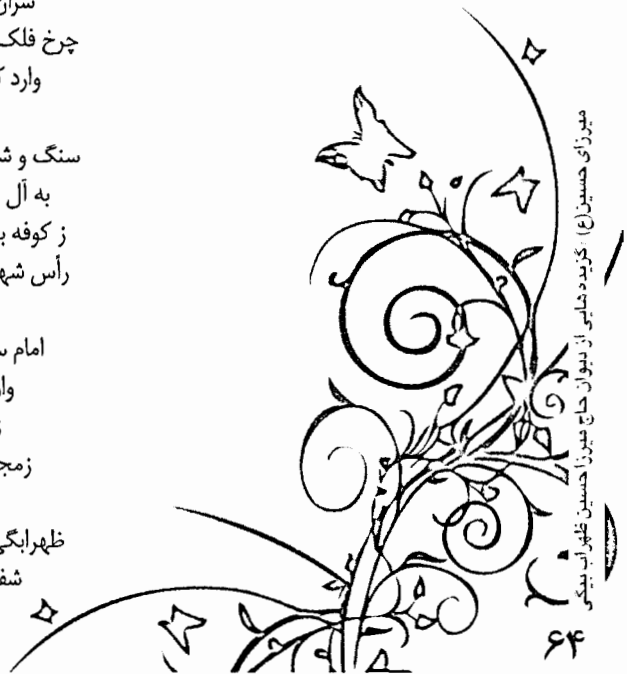 سران
چرخ فلک
وارد
سنگ و
به آل
ز کوفه
رأس
امام
زمجد
ظهرابگی
میرزای حسین(ع) گزیده‌هایی از دیوان حاج میرزا حسین ظهراب بیگی
۶۴